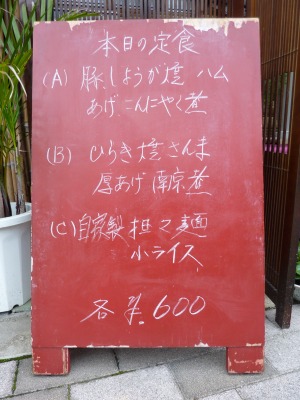 本日の定食
(A) 豚しょうが焼 ハム
あげ.こんにゃく煮
(B) ひらき焼さんま
厚あげ南京煮
(C)自家製担々麺
小ライス
各 ¥.600